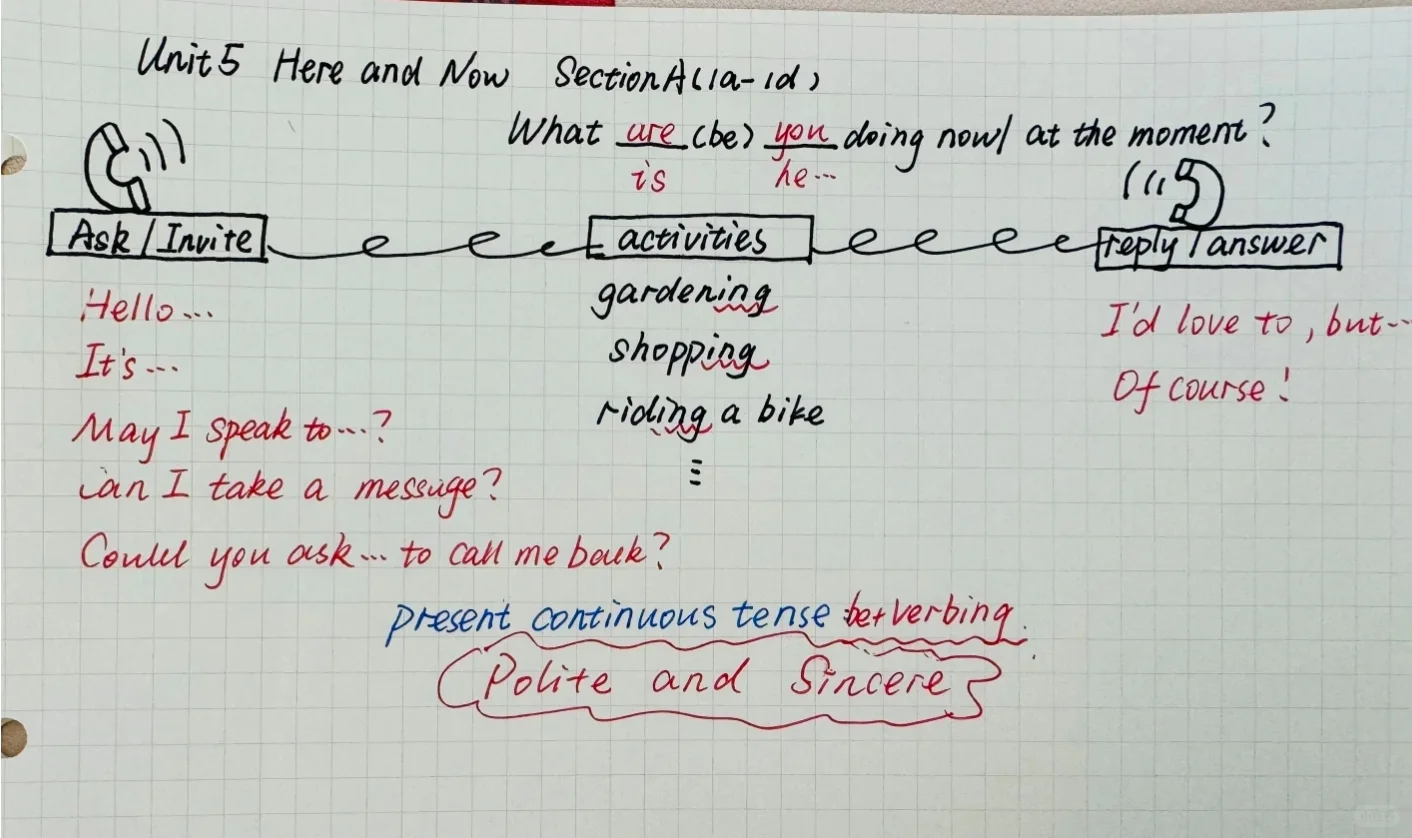 Unit 5 Here and Now Section A (1a-1d)
What are (be) you doing now/ at the moment?
is he...
Ask / Invite
activities
reply / answer
Hello...
It's...
May I speak to...?
Can I take a message?
Could you ask... to call me back?
gardening
shopping
riding a bike
I'd love to, but...
Of course!
present continuous tense be+verbing.
Polite and Sincere